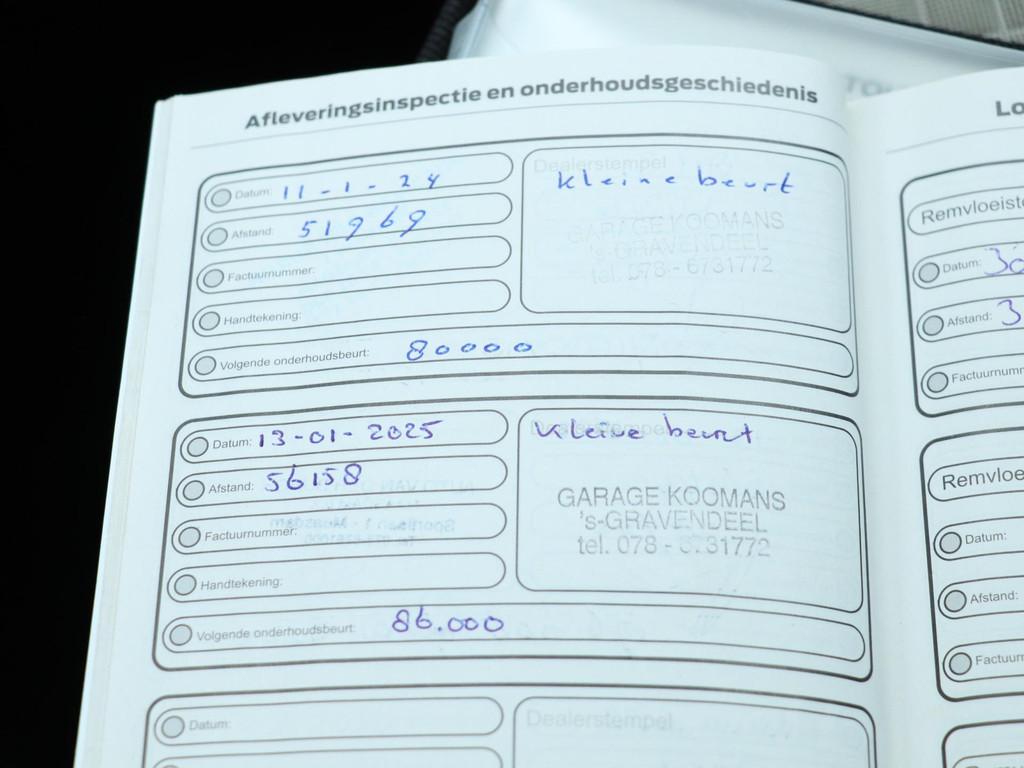 Afleveringsinspectie en onderhoudsgeschiedenis
Datum: 11-1-24
Afstand: 51969
Factuurnummer:
Handtekening:
Volgende onderhoudsbeurt: 80000
Dealerstempel
kleine beurt
GARAGE KOOMANS
's-GRAVENDEEL
tel. 078 - 6731772
Datum: 13-01-2025
Afstand: 56158
Factuurnummer:
Handtekening:
Volgende onderhoudsbeurt: 86.000
Dealerstempel
kleine beurt
GARAGE KOOMANS
's-GRAVENDEEL
tel. 078 - 6731772
Datum:
Dealerstempel
Lo
Remvloeist
Datum: 30
Afstand: 3
Factuurnum
Remvloe
Datum:
Afstand:
Factuur